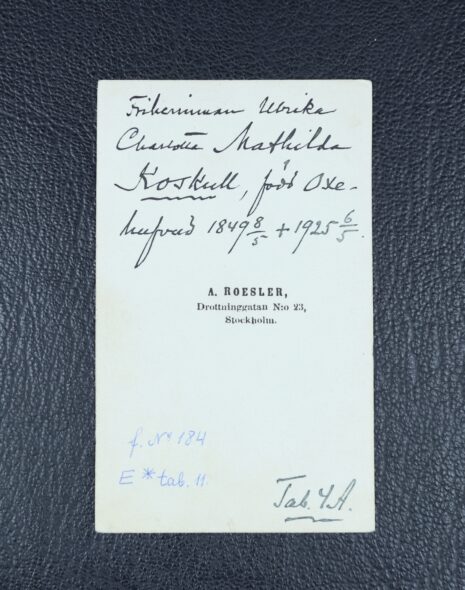 Friherinnan Ulrika
Charlotta Mathilda
Koskull, född Oxe-
hufvud 1849 8/5 + 1925 6/5.
A. ROESLER,
Drottninggatan N:o 23,
Stockholm.
f. Nº 184
E * tab. 11.
Tab. 4A.